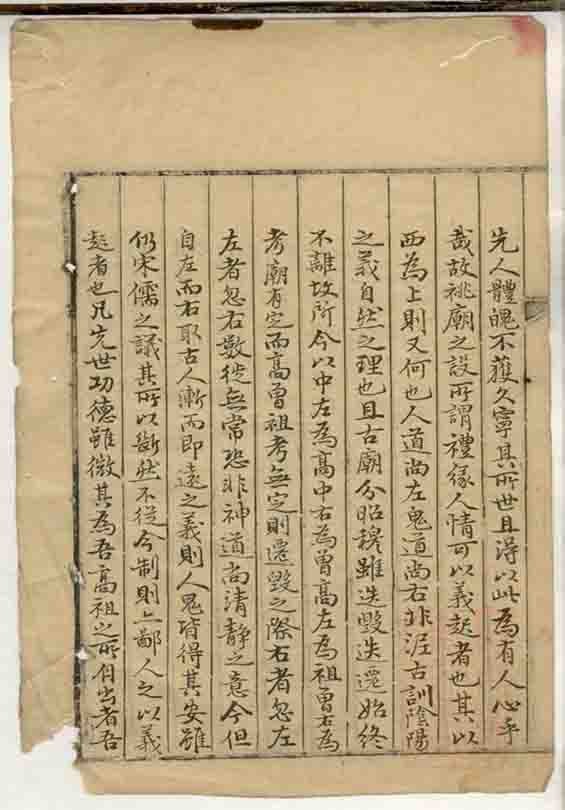 先人體魄不獲久寧其所世且得以此為有人心乎
哉故祧廟之設所謂禮緣人情可以義起者也其以
西為上則又何也人道尚左鬼道尚右非泥古訓陰陽
之義自然之理也且古廟分昭穆雖迭毀迭遷始終
不離故所今以中左為高中右為曾高左為祖曾右為
考廟有定而高曾祖考無定則遷毀之際右者忽左
左者忽右數徙無常恐非神道尚清靜之意今但
自左而右取古人漸而即遠之義則人鬼皆得其安雖
仍宋儒之議其所以斷然不從今制則亦鄙人之以義
起者也凡先世功德雖微其為吾高祖之所自出者吾